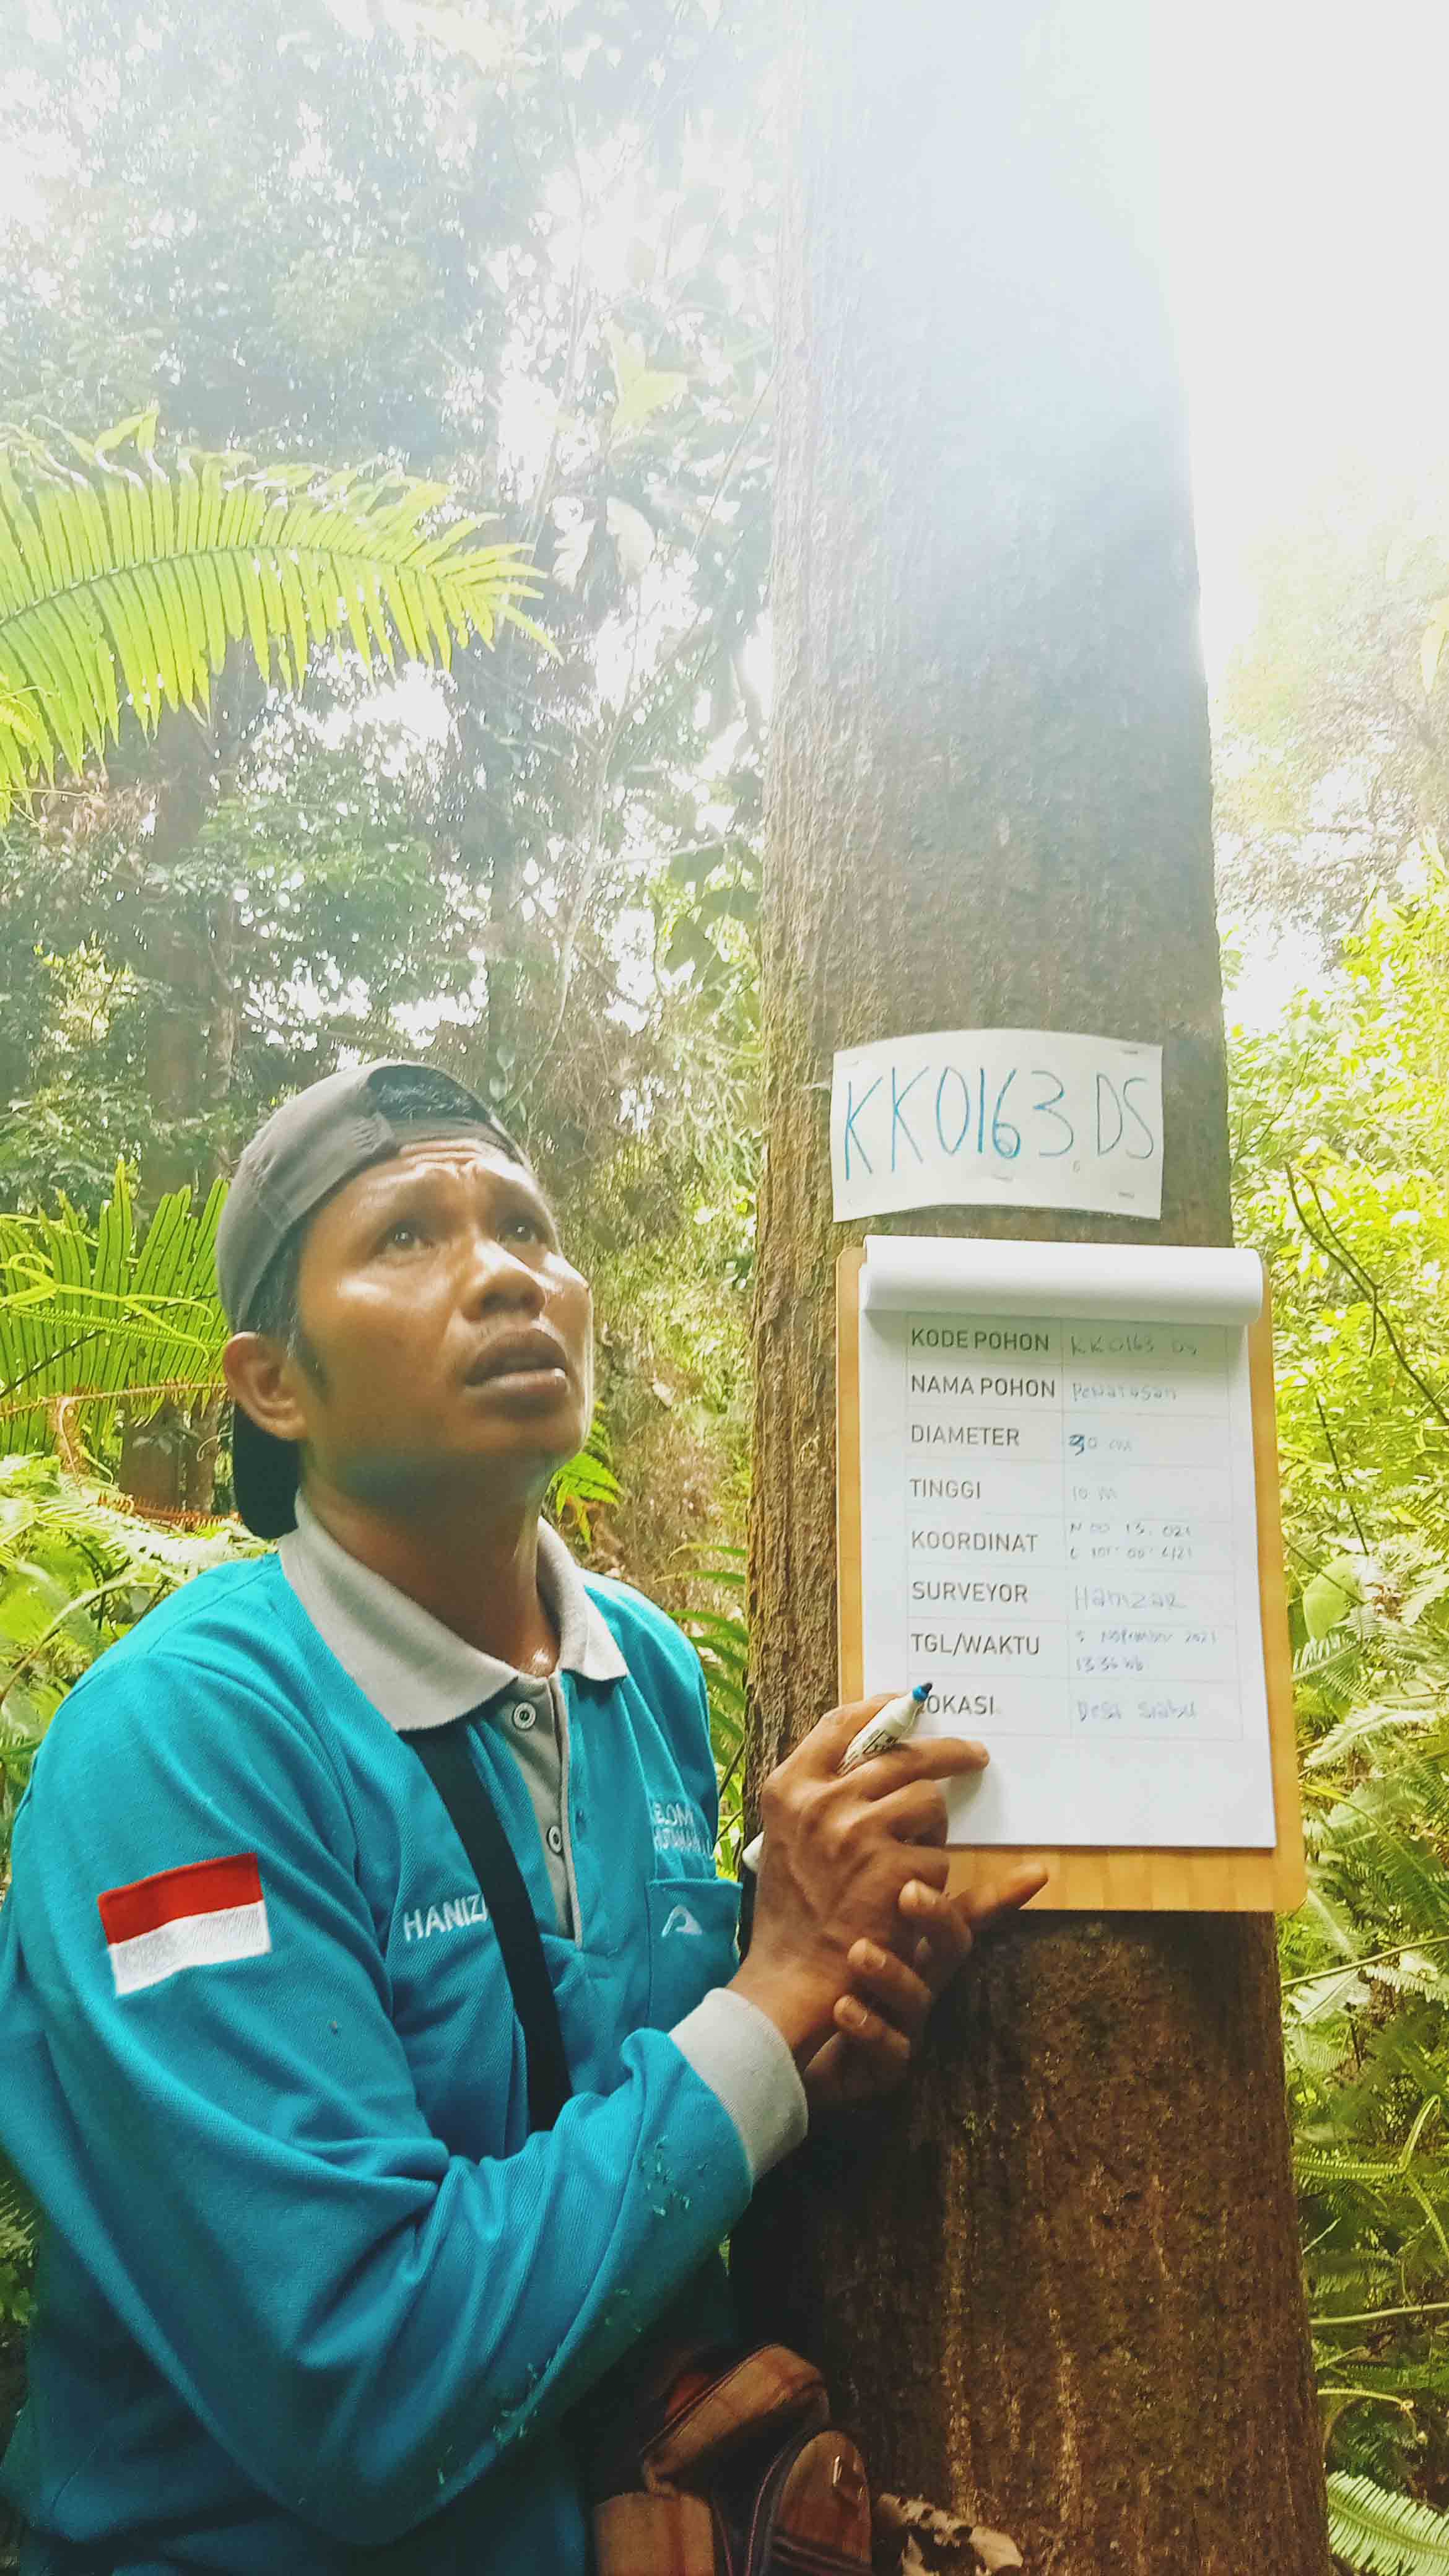 KK0163 DS
KODE POHON KK0163 DS
NAMA POHON Penatusan
DIAMETER 90 cm
TINGGI 10 m
KOORDINAT N 00 13. 021
E 101° 00'
SURVEYOR Hamzar
TGL/WAKTU 5 November 2021
13.36 wib
LOKASI Desa Siabu
HANIZ